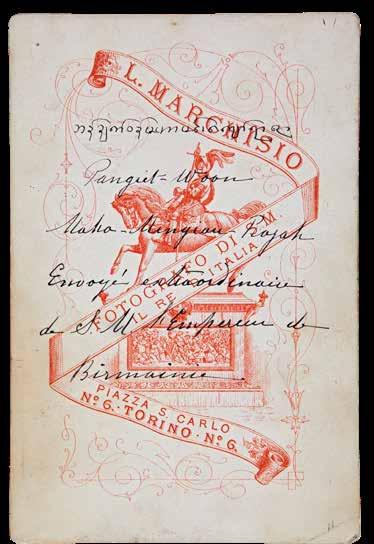 L. MARCHISIO
Pangiet-Woon
Maha-Mengiau-Rajah
FOTOGRAFO DI S.M.
IL RE D'ITALIA
Envoyé extraordinaire
de S. M. l'Empereur de
Birmanie
PIAZZA S. CARLO
Nº 6. TORINO. Nº 6.